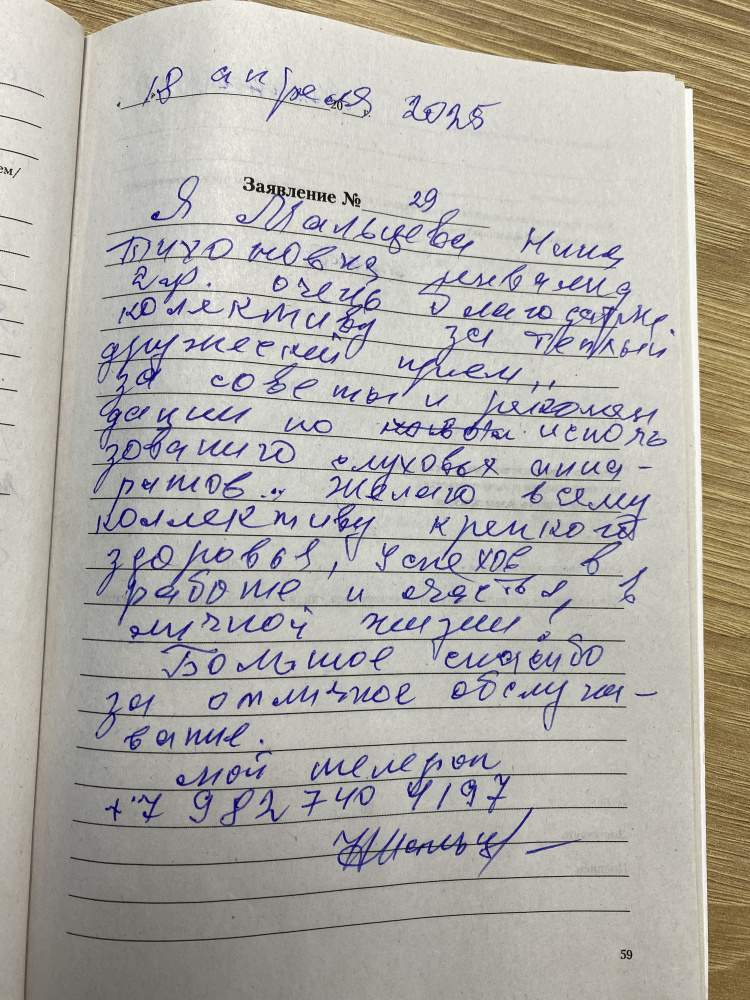 18 апреля 2025
20 г.
Заявление № 29
Я Мальцева Нина
Тихоновна инвалид
2 гр. очень благодарна
коллективу за теплый
дружеский прием,,
за советы и рекомен
дации по исполь
зованию слуховых аппа-
ратов.. Желаю всему
коллективу крепкого
здоровья, успехов в
работе и счастья, в
личной жизни!
Большое спасибо
за отличное обслужи-
вание.
мой телефон
+7 982 740 4197
ем/
59